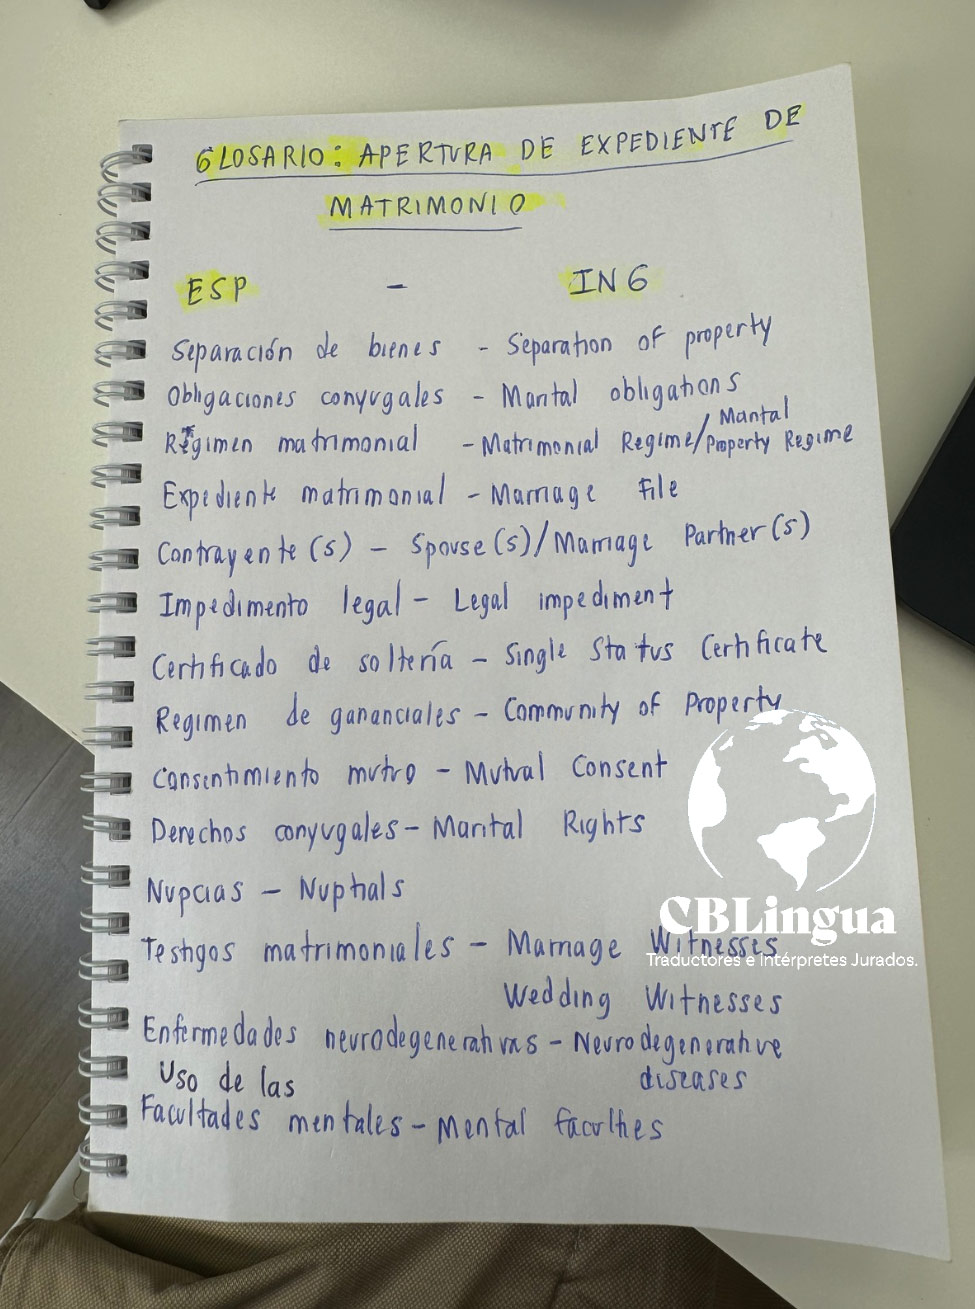 GLOSARIO: APERTURA DE EXPEDIENTE DE
MATRIMONIO
ESP - ING
Separación de bienes - Separation of property
Obligaciones conyugales - Marital obligations
Régimen matrimonial - Matrimonial Regime/Marital Property Regime
Expediente matrimonial - Marriage File
Contrayente(s) - Spouse(s)/Marriage Partner(s)
Impedimento legal - Legal impediment
Certificado de soltería - Single Status Certificate
Regimen de gananciales - Community of Property
Consentimiento mutuo - Mutual Consent
Derechos conyugales - Marital Rights
Nupcias - Nuptials
Testigos matrimoniales - Marriage Witnesses
Wedding Witnesses
Enfermedades neurodegenerativas - Neurodegenerative
diseases
Uso de las
Facultades mentales - Mental faculties
CBLingua
Traductores e Intérpretes Jurados.